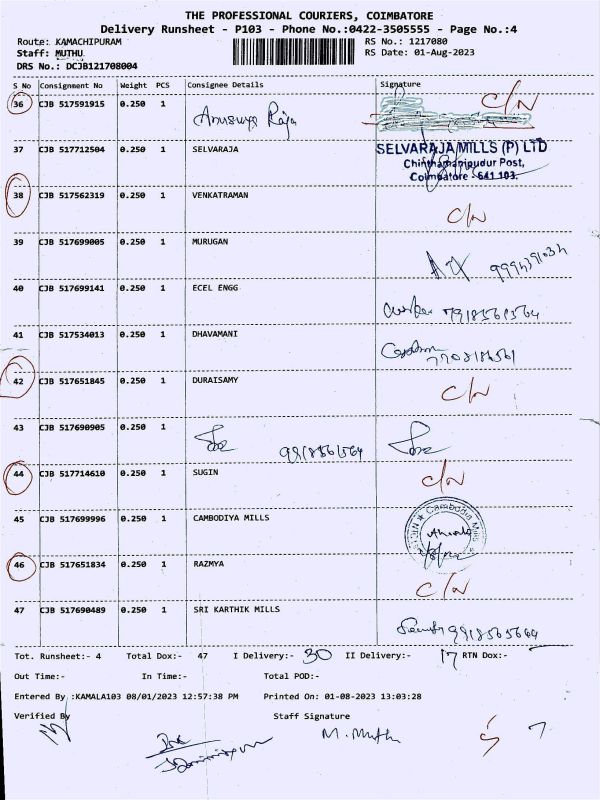 THE PROFESSIONAL COURIERS, COIMBATORE
Delivery Runsheet - P103 - Phone No.:0422-3505555 - Page No.:4
Route: KAMACHIPURAM RS No.: 1217080
Staff: MUTHU RS Date: 01-Aug-2023
DRS No.: DCJB121708004
S No Consignment No Weight PCS Consignee Details Signature
36 CJB 517591915 0.250 1 Anusuya Raja C/N
37 CJB 517712504 0.250 1 SELVARAJA SELVARAJA MILLS (P) LTD
Chinthamanipudur Post,
Coimbatore - 641 103.
38 CJB 517562319 0.250 1 VENKATRAMAN C/N
39 CJB 517699005 0.250 1 MURUGAN
40 CJB 517699141 0.250 1 ECEL ENGG
41 CJB 517534013 0.250 1 DHAVAMANI
42 CJB 517651845 0.250 1 DURAISAMY C/N
43 CJB 517690905 0.250 1
44 CJB 517714610 0.250 1 SUGIN C/N
45 CJB 517699996 0.250 1 CAMBODIYA MILLS Cambodia Mills
46 CJB 517651834 0.250 1 RAZMYA C/N
47 CJB 517690489 0.250 1 SRI KARTHIK MILLS
Tot. Runsheet:- 4 Total Dox:- 47 I Delivery:- 30 II Delivery:- 17 RTN Dox:-
Out Time:- In Time:- Total POD:-
Entered By :KAMALA103 08/01/2023 12:57:38 PM Printed On: 01-08-2023 13:03:28
Verified By Staff Signature
M. Muthu
7